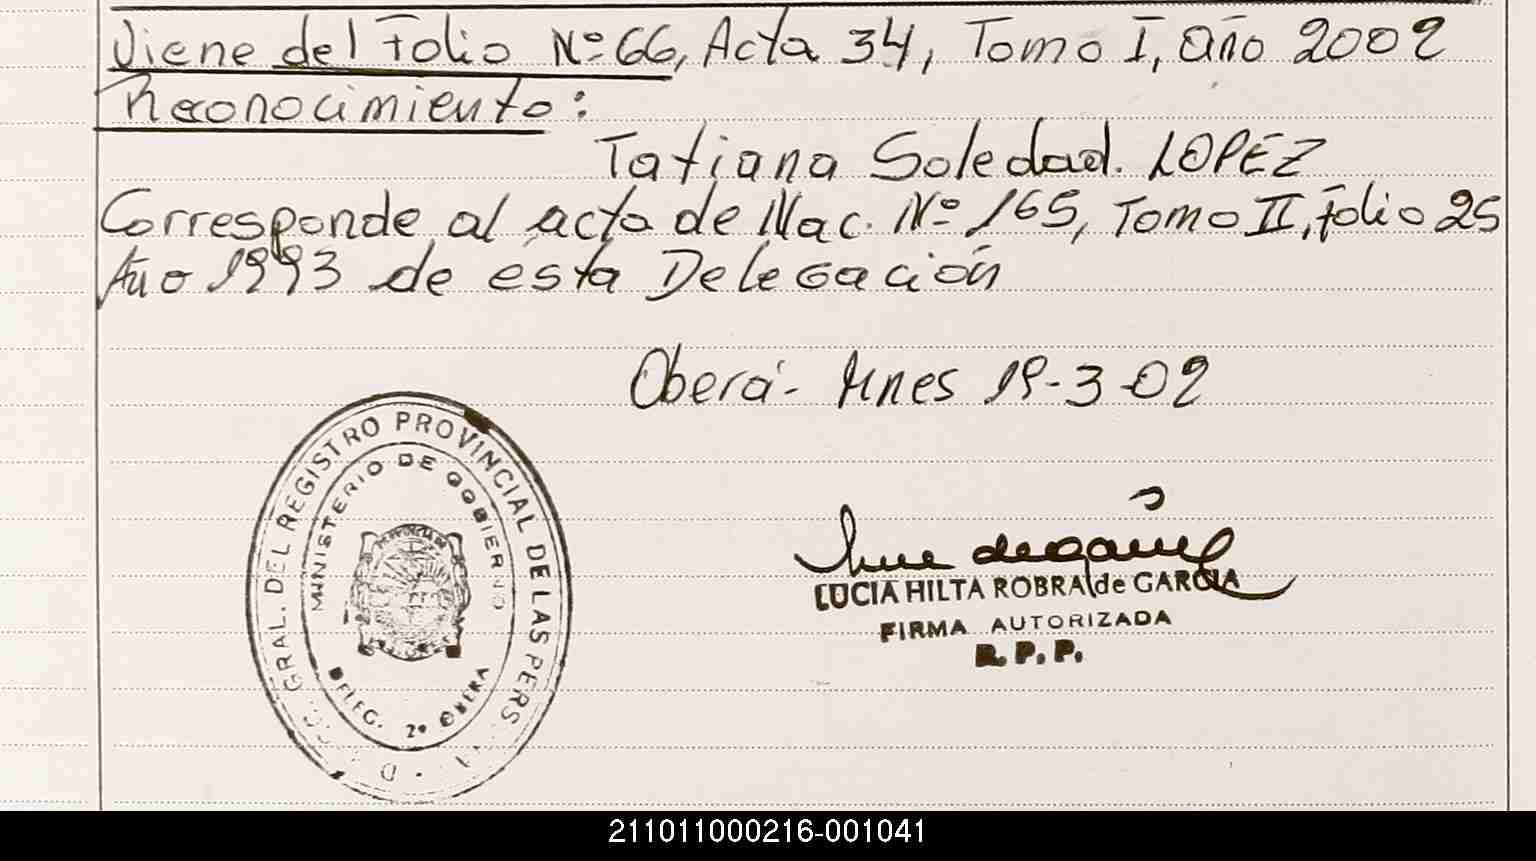 Viene del Folio Nº 66, Acta 34, Tomo I, año 2002
Reconocimiento:
Tatiana Soledad. LOPEZ
Corresponde al acta de Nac. Nº 165, Tomo II, folio 25
Año 1993 de esta Delegación
Oberá - Mnes 19-3-02
GRAL. DEL REGISTRO PROVINCIAL DE LAS PERS.
MINISTERIO DE GOBIERNO
DELEG. 2º OBERA
LUCIA HILTA ROBRA de GARCIA
FIRMA AUTORIZADA
R. P. P.
211011000216-001041